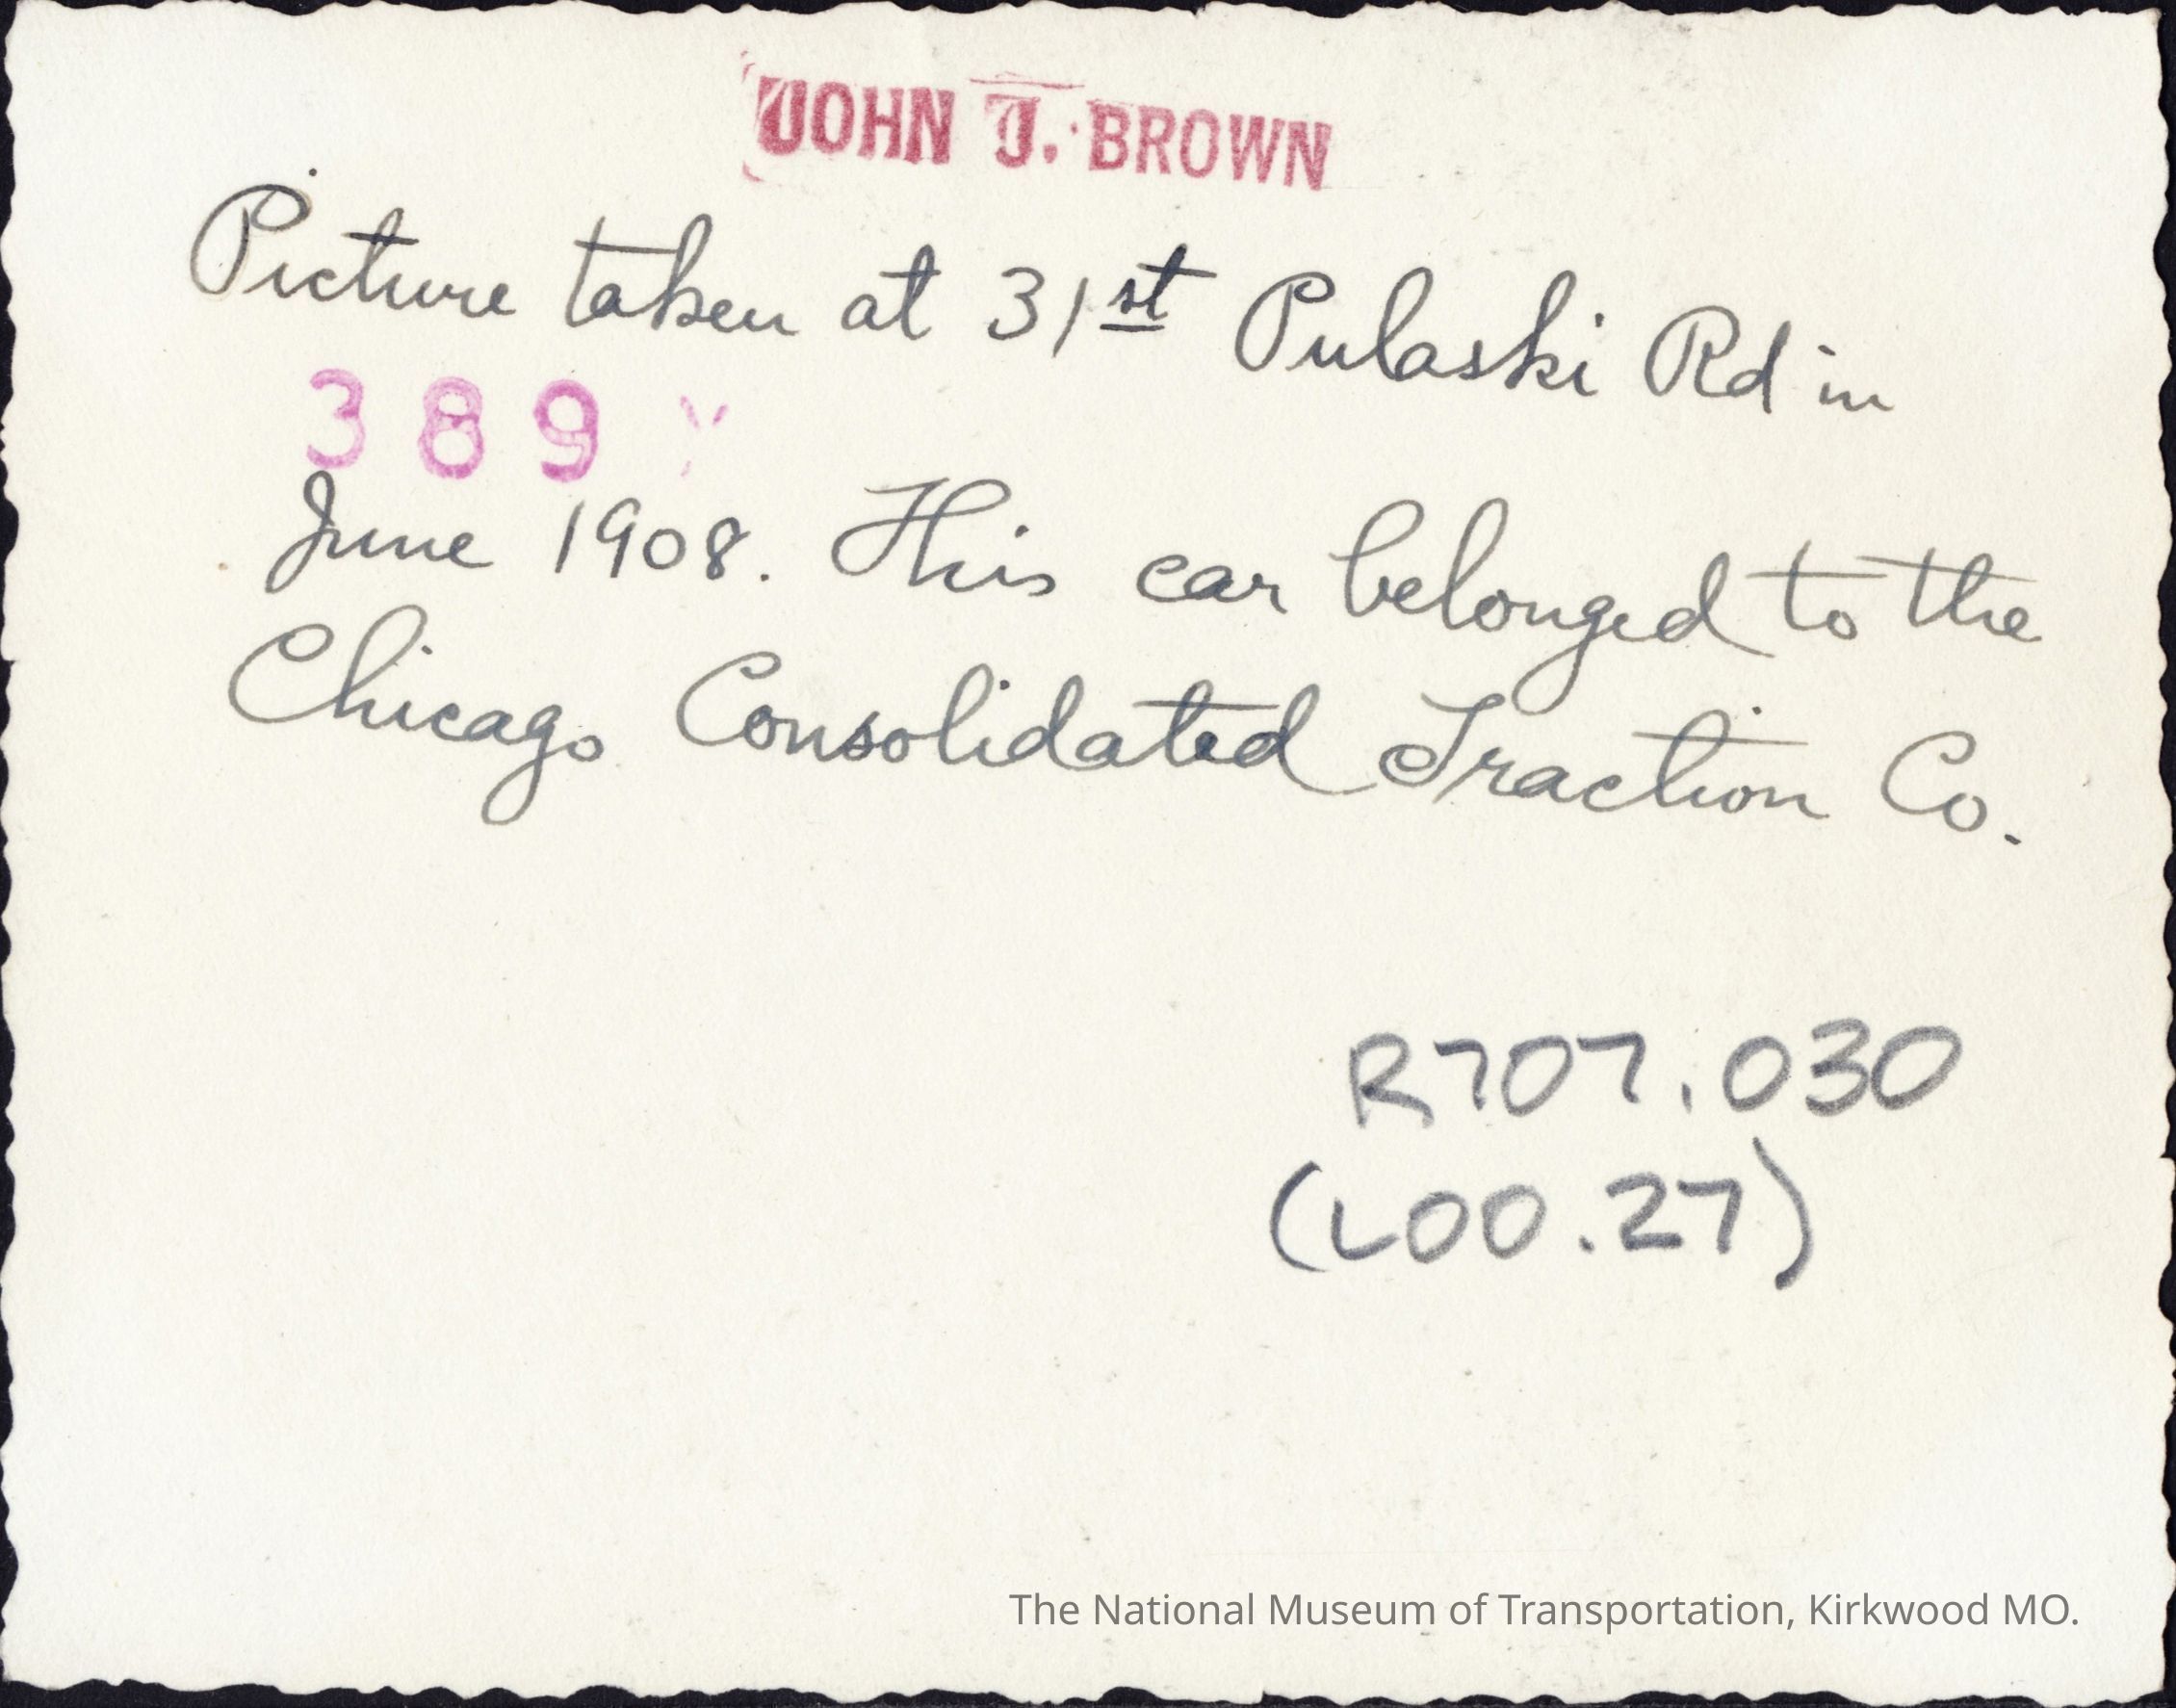 JOHN J. BROWN
Picture taken at 31st Pulaski Rd in
389
June 1908. This car belonged to the
Chicago Consolidated Traction Co.
R707.030
(L00.27)
The National Museum of Transportation, Kirkwood MO.